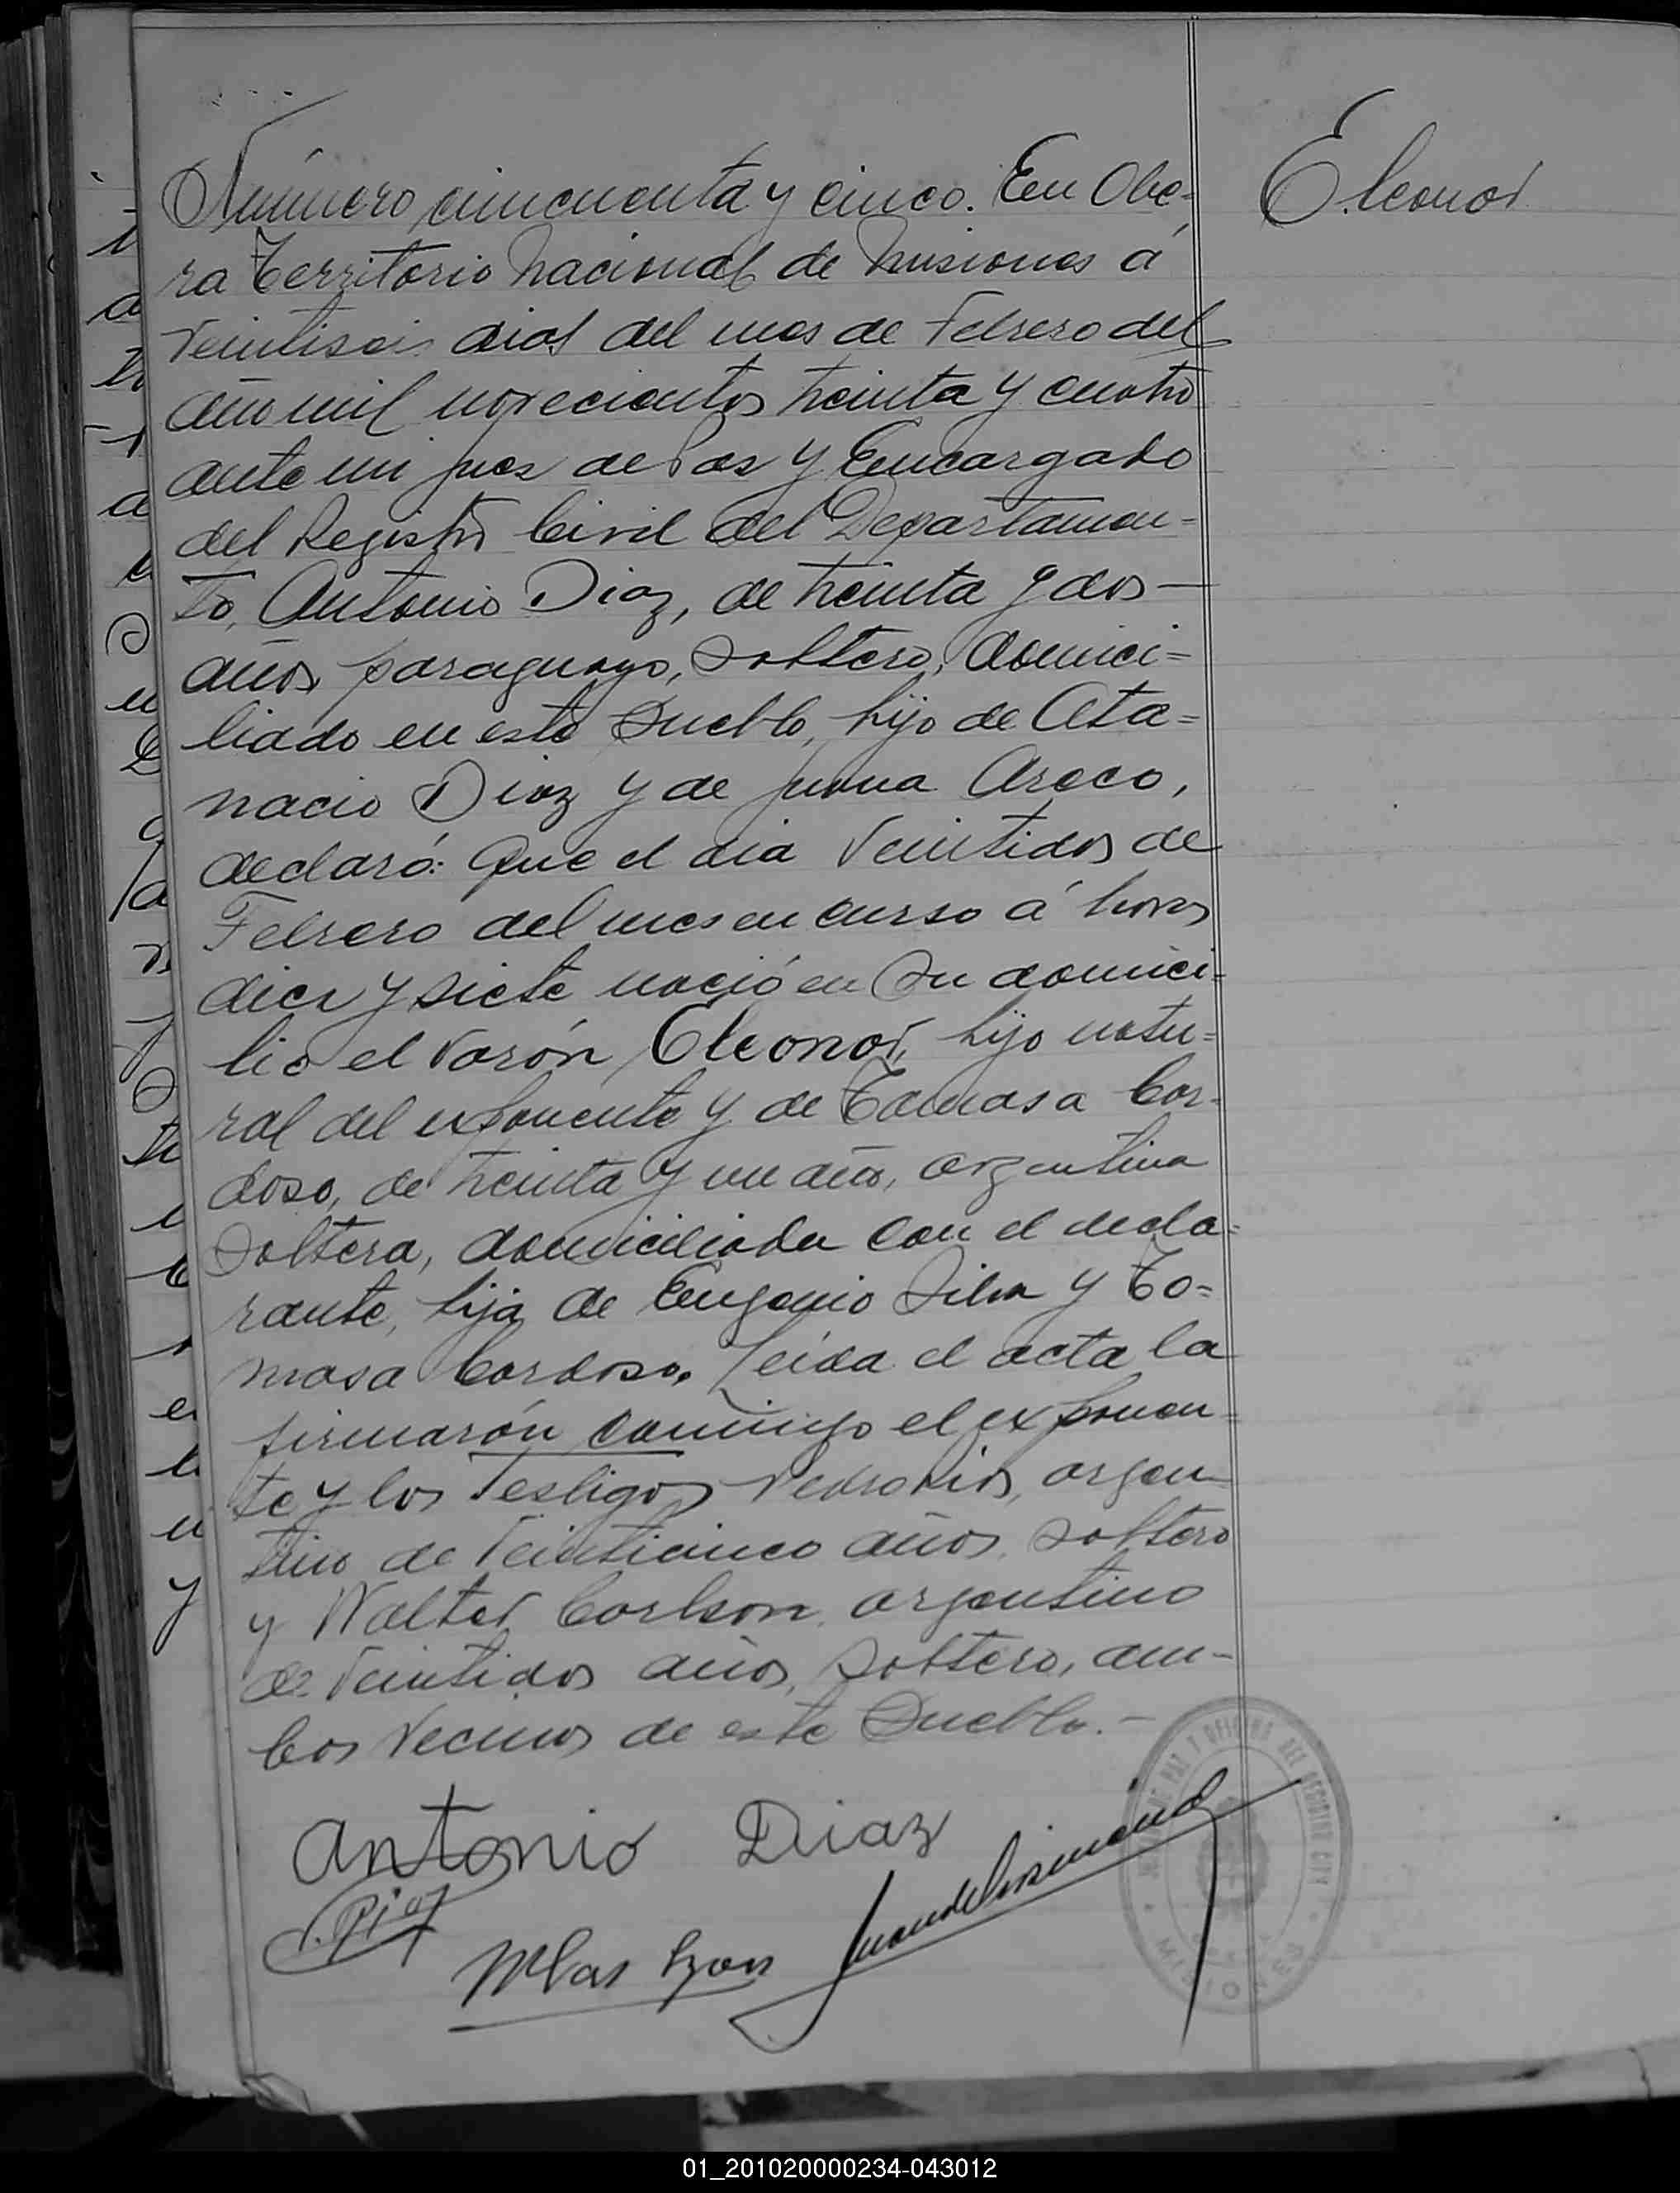 Número cincuenta y cinco. En Obe=
ra Territorio Nacional de Misiones á
veintiseis dias del mes de Febrero del
año mil novecientos treinta y cuatro
ante mi juez de Paz y Encargado
del Registro Civil del Departamen=
to, Antonio Diaz, de treinta y dos —
años, paraguayo, soltero, domici=
liado en este Pueblo, hijo de Ata=
nacio Diaz y de Juana Areco,
declaró: Que el dia veintidos de
Febrero del mes en curso á horas
diez y siete nació en su domici=
lio el varón Eleonor, hijo natu=
ral del exponente y de Tomasa Cor=
doso, de treinta y un año, argentina
soltera, domiciliada con el decla=
rante, hija de Eugenio Silva y To=
masa Cordoso. Leida el acta la
firmarón conmigo el exponen=
te y los Testigos Pedro Rios, argen
tino de veinticinco años, soltero
y Walter Carlson, argentino
de veintidos años, soltero, am-
bos vecinos de este Pueblo.-
Eleonor
Antonio Diaz
MISIONES
01_201020000234-043012